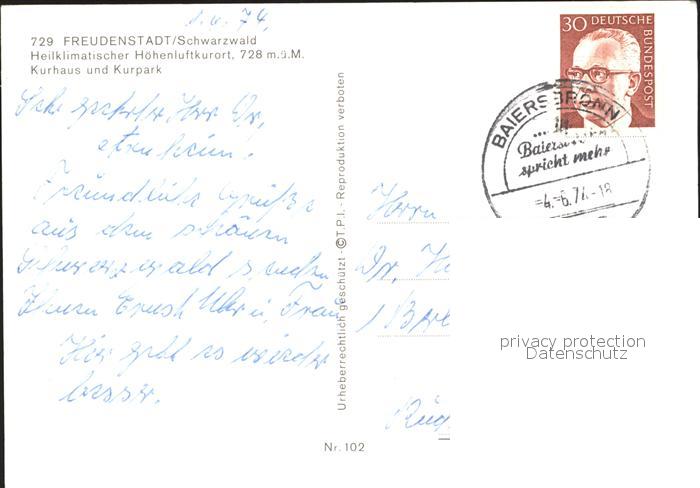 1.6.74,
729 FREUDENSTADT/Schwarzwald
Heilklimatischer Höhenluftkurort, 728 m.ü.M.
Kurhaus und Kurpark
Sehr geehrter Herr Dr.
Freundliche Grüße
aus dem schönen
Schwarzwald senden
Ihnen Ernst Uhr u. Frau
Hier geht es wieder
besser.
Urheberrechtlich geschützt - ©T.P.I. - Reproduktion verboten
Nr. 102
30 DEUTSCHE
BUNDESPOST
BAIERSBRONN
... in
spricht mehr
-4.-6.74-18
Herrn
Dr.
1
privacy protection
Datenschutz